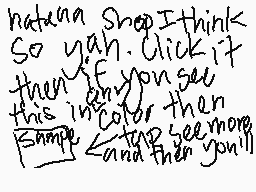 hatena Shop I think
So yah. Click it
then if you see any
this in color then
Sample ← tap see more
and then you'll